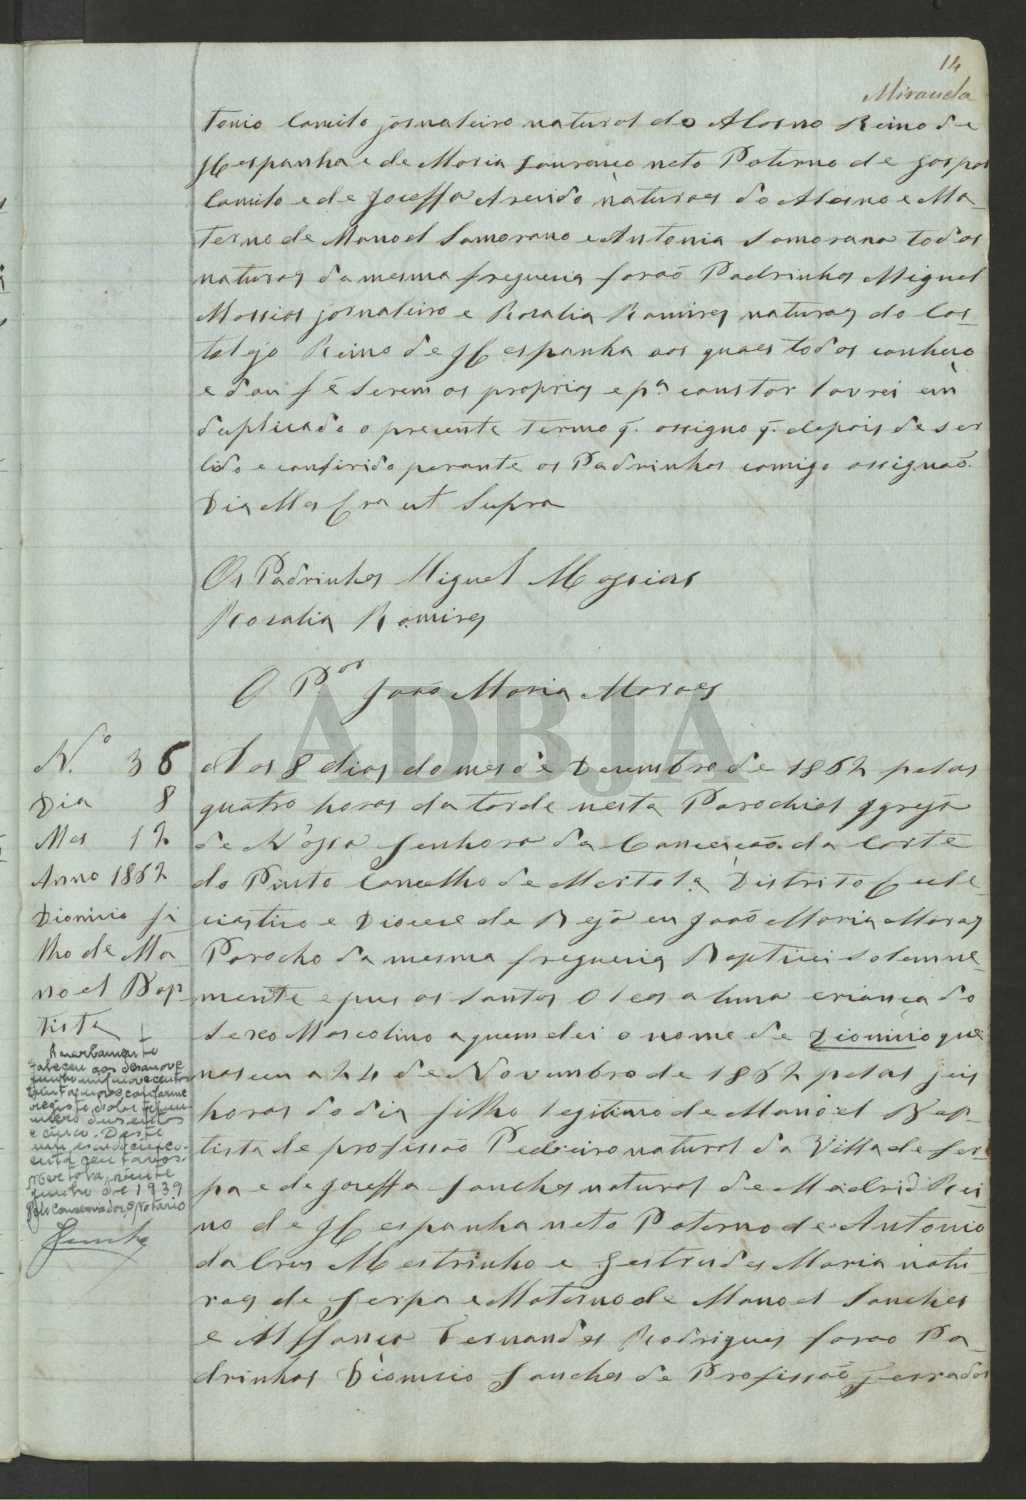 14
Miranda
tonio Camilo jornaleiro natural do Alosno Reino de
Hespanha e de Maria Lourença neto Paterno de Gaspar
Camilo e de Joseffa naturaes do Alosno e Ma-
terno de Manoel Samorano e Antonia Samorana todos
naturaes da mesma freguezia forão Padrinhos Miguel
Messias jornaleiro e Rozalia Ramires naturaes do Cas-
telejo Reino de Hespanha aos quaes todos conheço
e dou fé serem os proprios e pª constar lavrei em
duplicado o prezente termo q. assigno q. depois de ser
lido e conferido perante os Padrinhos comigo assignão.
Dia Mes Era ut Supra
Os Padrinhos Miguel Messias
Rozalia Ramires
O P.or João Maria Moraes
ADBJA
N.o 36
Dia 8
Mes 12
Anno 1862
Dionizio fi
lho de Ma-
noel Bap-
tista
Aos 8 dias do mes de Dezembro de 1862 pelas
quatro horas da tarde nesta Parochial Igreja
de Nossa Senhora da Conceição da Corte
do Pinto Concelho de Mertola Distrito Ecle-
ziastico e Diocese de Beja eu João Maria Moraes
Parocho da mesma freguezia Baptizei solemne-
mente e pus os Santos Oleos a huma criança do
sexo Mascolino a quem dei o nome de Dionizio que
nasceu a 24 de Novembro de 1862 pelas seis
horas do dia filho legitimo de Manoel Bap-
tista de profissão Pedreiro natural da Villa de Ser-
pa e de Joseffa Sanches natural de Madrid Rei
no de Hespanha neto Paterno de Antonio
da Crus Mestrinho e Gertrudes Maria natu-
raes de Serpa e Materno de Manoel Sanches
e Fernandes Rodrigues forão Pa-
drinhos Dionizio Sanches de Profissão Ferrador
Averbamento
faleceu aos dezanove
junho mil novecentos
trinta conforme
registo
numero duzentos
e cinco. Deste
um escudo cinco-
enta centavos.
Mertola, vinte
junho de 1939
Pelo Conservador, o Notário